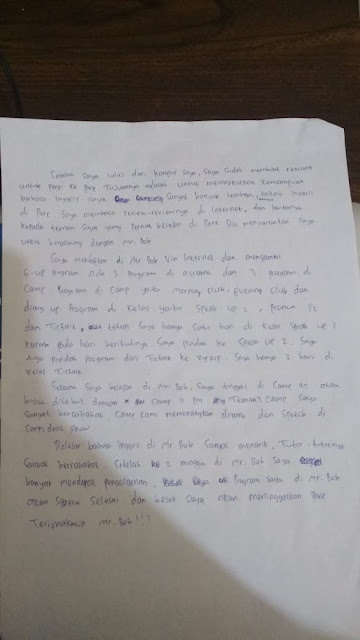 Setelah saya lulus dari kampus saya, saya sudah membuat rencana
untuk pergi ke Pare. Tujuannya adalah untuk memaksakan kemampuan
bahasa Inggris saya. sangat banyak lembaga bahasa Inggris
di Pare. Saya membaca review-reviewnya di Internet, dan bertanya
kepada teman saya yang pernah belajar di Pare. Dia menyarankan saya
untuk bergabung dengan Mr. Bob
Saya mendaftar di Mr Bob Via Internet dan mengambil
6 program. Ada 3 program di asrama dan 3 program di
Camp. Program di Camp yaitu morning club, evening club dan
diary. Program di kelas yaitu Speak up 1, Pronun
dan Tictalk, tetapi saya hanya satu hari di kelas Speak up 1
karena pada hari berikutnya saya pindah ke Speak up 2. Saya
juga pindah program dari Tictalk ke Saya hanya 2 hari di
kelas Tictalk.
Selama saya belajar di Mr. Bob, saya tinggal di Camp 25 atau
biasa disebut dengan Camp Camp saya
sangat bersahabat. Camp kami memenangkan drama dan speech di
Confidence Show
Belajar bahasa Inggris di Mr. Bob sangat menarik, Tutor-tutornya
sangat bersahabat. Setelah 2 minggu di Mr. Bob saya
banyak mendapat pengalaman. Program saya di Mr. Bob
akan segera selesai dan besok saya akan meninggalkan Pare
Terimakasih Mr. Bob!!!